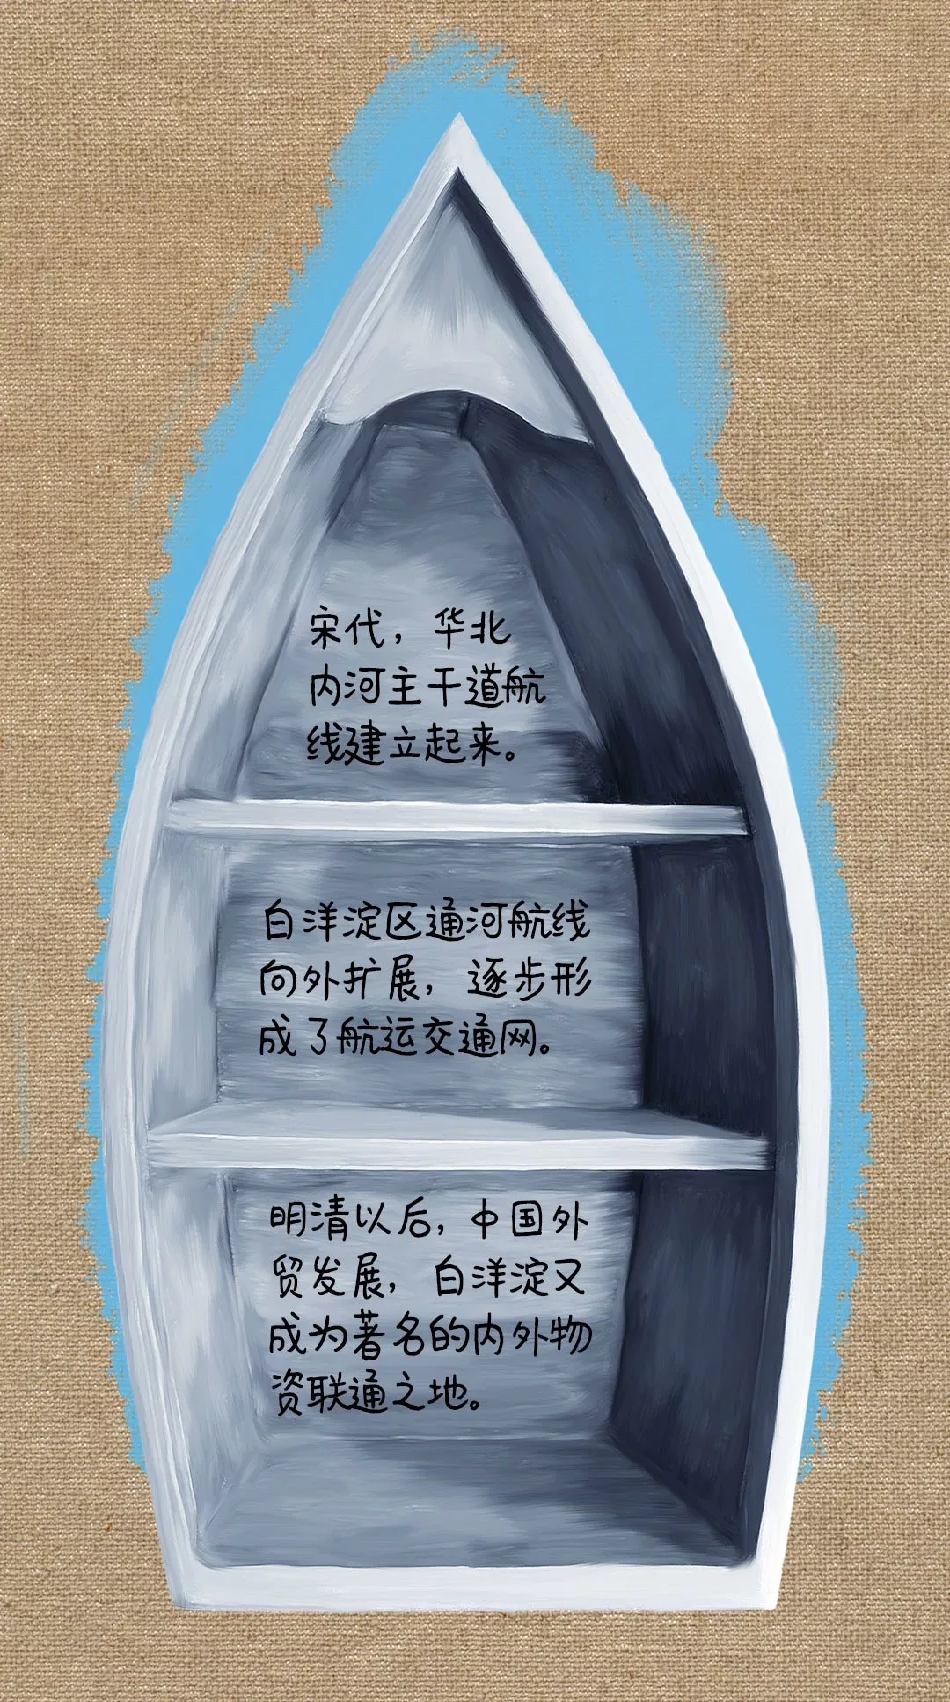 宋代，华北
内河主干道航
线建立起来。
白洋淀区通河航线
向外扩展，逐步形
成了航运交通网。
明清以后，中国外
贸发展，白洋淀又
成为著名的内外物
资联通之地。